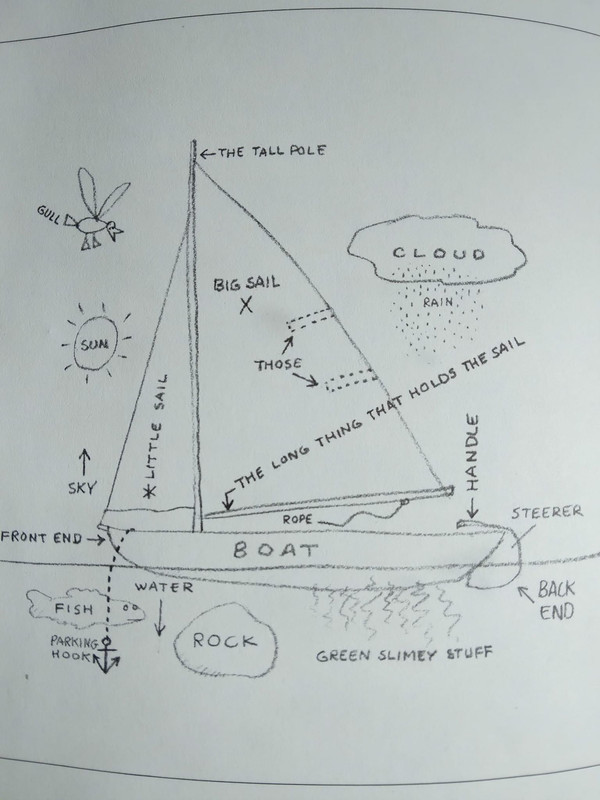 THE TALL POLE
GULL
CLOUD
RAIN
BIG SAIL
SUN
THOSE
THE LONG THING THAT HOLDS THE SAIL
LITTLE SAIL
SKY
HANDLE
ROPE
STEERER
FRONT END
BOAT
WATER
BACK
END
FISH
ROCK
PARKING
HOOK
GREEN SLIMEY STUFF